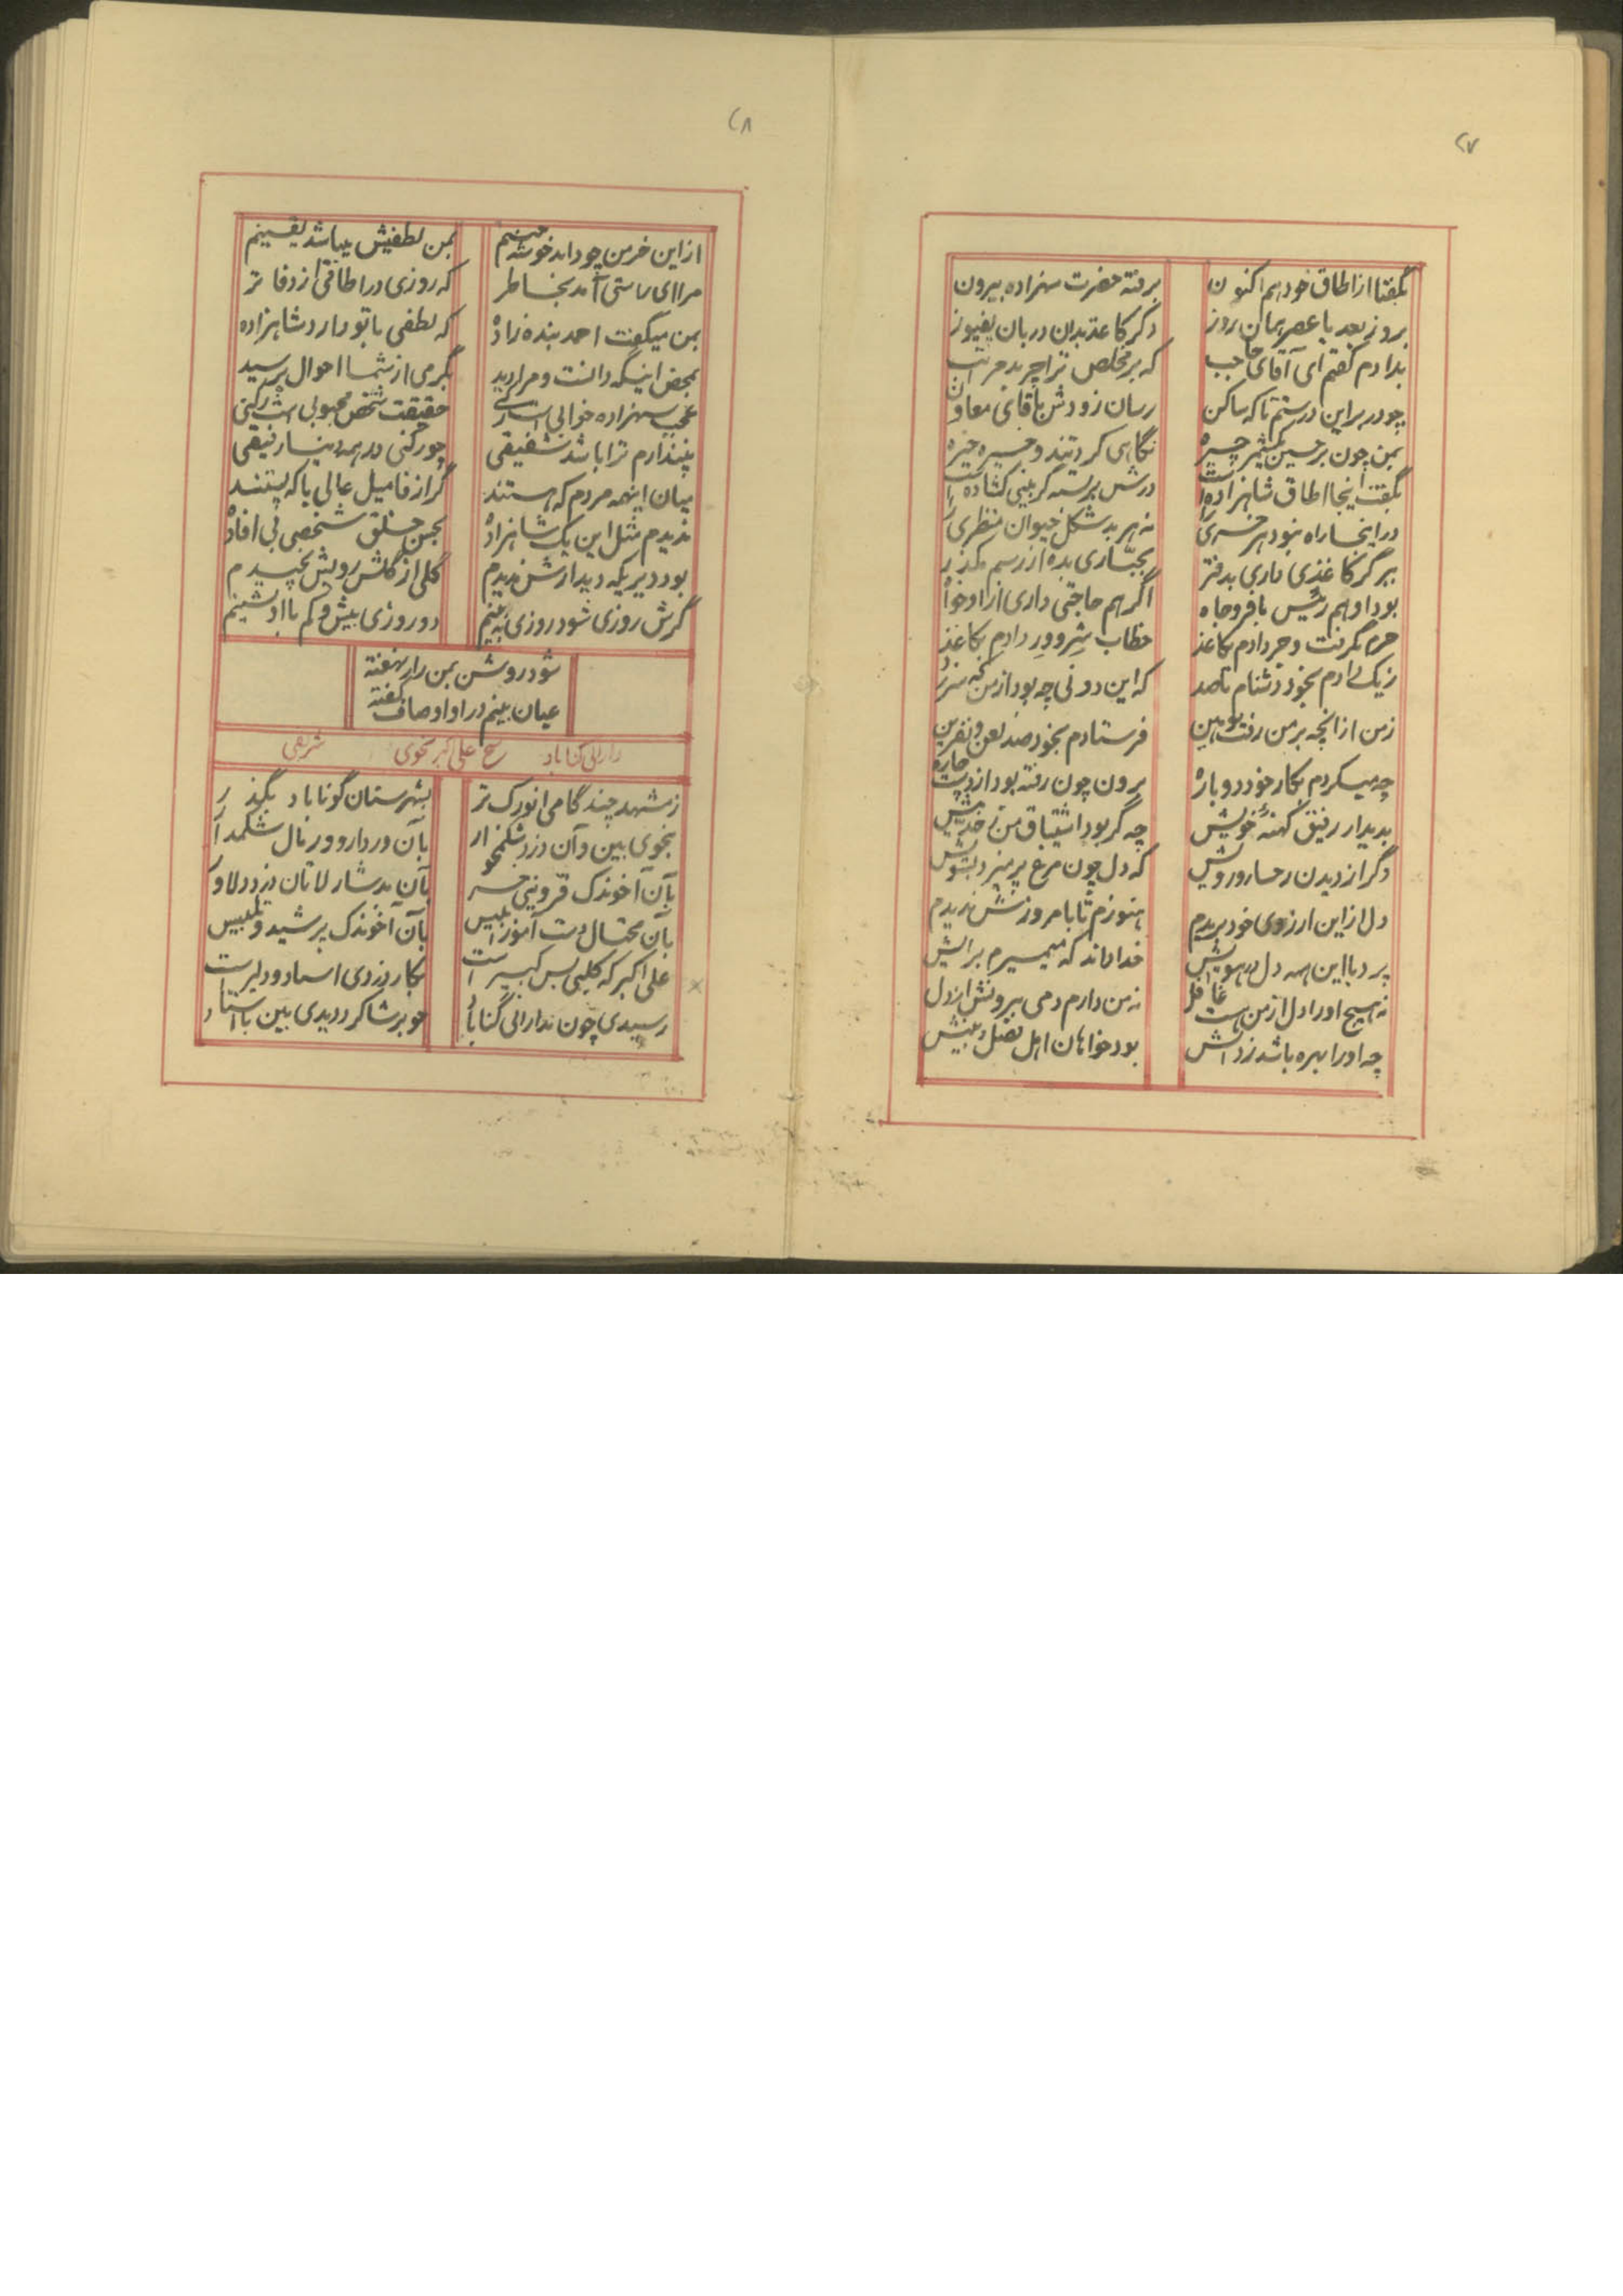 ۲۷
بگفتا از اطاق خود هم اکنون
برفته حضرت شهزاده بیرون
بروز بعد یا عصر همان روز
دگر کاغذ بدان دربان پفیوز
بدادم گفتم ای آقای حاجب
که بر مخلص ترا چربد مراتب
چو در بر این درستم تا که ساکن
رسان زودش باقای معاون
بمن چون بر حسین شمر چیره
نگاهی کرد تند و خیره خیره
بگفت اینجا اطاق شاهزاده است
درش بر بسته گر بینی گشاده است
در اینجا راه نبود هر خری را
نه هر بد شکل حیوان منظری را
ببر گر کاغذی داری بدفتر
بجباری بده از رسم مگذر
بود او هم رئیس با فر و جاه
اگر هم حاجتی داری از او خواه
خرم بگرفت و خر دادم بکاغذ
خطاب شر و ور دادم بکاغذ
ز یک دادم بخود دشنام تا صد
که این دونی چه بود از من که سر زد
زمن از انچه بر من رفت توهین
فرستادم بخود صد لعن و نفرین
چه میکردم بکار خود دوباره
برون چون رفته بود از دست چاره
بدیدار رفیق کهنهٔ خویش
چه گر بود اشتیاق من ز حد بیش
دگر از دیدن رخسار و رویش
که دل چون مرغ پر میزد بسویش
دل از این ارزوی خود بریدم
هنوزم تا بامروزش ندیدم
پرد با این همه دل در هوایش
خدا داند که میمیرم برایش
نه هیچ او را دل از من هست غافل
نه من دارم دمی بیرونش از دل
چه او را بهره باشد ز دانش
بود خواهان اهل فضل و بینش
۲۸
از این خرمن چو داند خوشه چینم
بمن لطفیش میباشد یقینم
مرا ای راستی آمد بخاطر
که روزی در اطاقی از دفاتر
بمن میگفت احمد بنده زاده
که لطفی با تو دارد شاهزاده
بمحض اینکه دانست و مرا دید
بگرمی از شما احوال پرسید
عجب شهزاده خوابی است راستی
حقیقت شخص محبوبی است رکنی
نپندارم ترا باشد شفیقی
چو رکنی در همه دنیا رفیقی
میان اینهمه مردم که هستند
گر از فامیل عالی یا که پستند
ندیدم مثل این یک شاهزاده
بحسن خلق شخصی بی افاده
بود دیریکه دیدارش ندیدم
گلی از گلشن رویش نچیدم
گرش روزی شود روزی ببینم
دو روزی بیش و کم با او نشینم
شود روشن بمن راز نهفته
عیان بینم در او اوصاف گفته
دارائی گناباد شیخ علی اکبر نحوی شریفی
ز مشهد چند گامی انورک تر
بشهرستان گوناباد بگذر
نحوی بین و آن دزد شکمخوار
بآن وردار و ورمال شکمدار
بآن آخوندک قزوینی خر
بآن بدشار لاتان دزد دلاور
بآن محتال دست آموز ابلیس
بآن آخوندک پر شید و تلبیس
علی اکبر که کلبی بس کبیر است
بکار دزدی استاد و دلیر است
رسیدی چون بدارائی گناباد
چو بر شاگرد دیدی بین باستاد